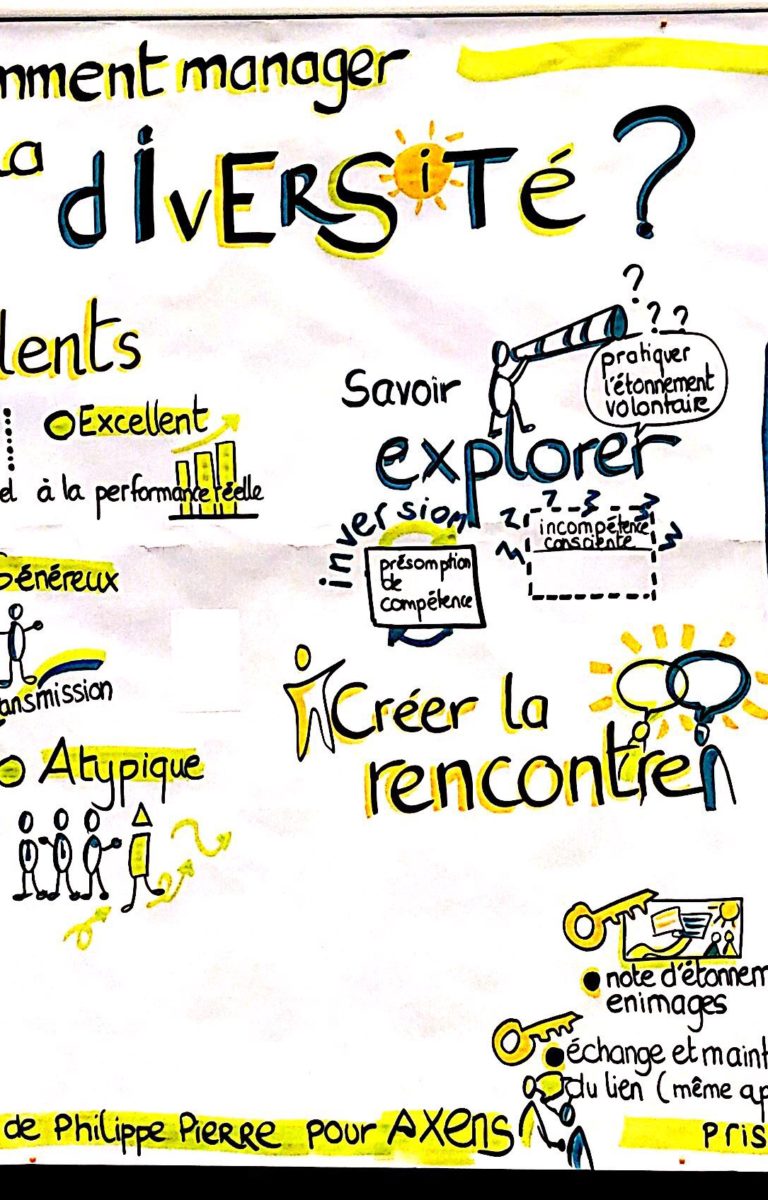 mment manager
la diversité ?
lents
Excellent
el à la performance réelle
Généreux
ansmission
Atypique
?
? ?
pratiquer
l'étonnement
volontaire
Savoir
explorer
inversion
présomption
de
compétence
incompétence
consciente
Créer la
rencontre
note d'étonnem
en images
échange et maint
du lien (même ap
de Philippe Pierre pour AXENS
Pris